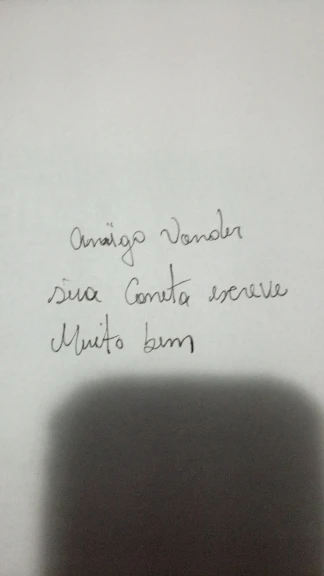 Amigo Vander
sua Caneta escreve
Muito bem